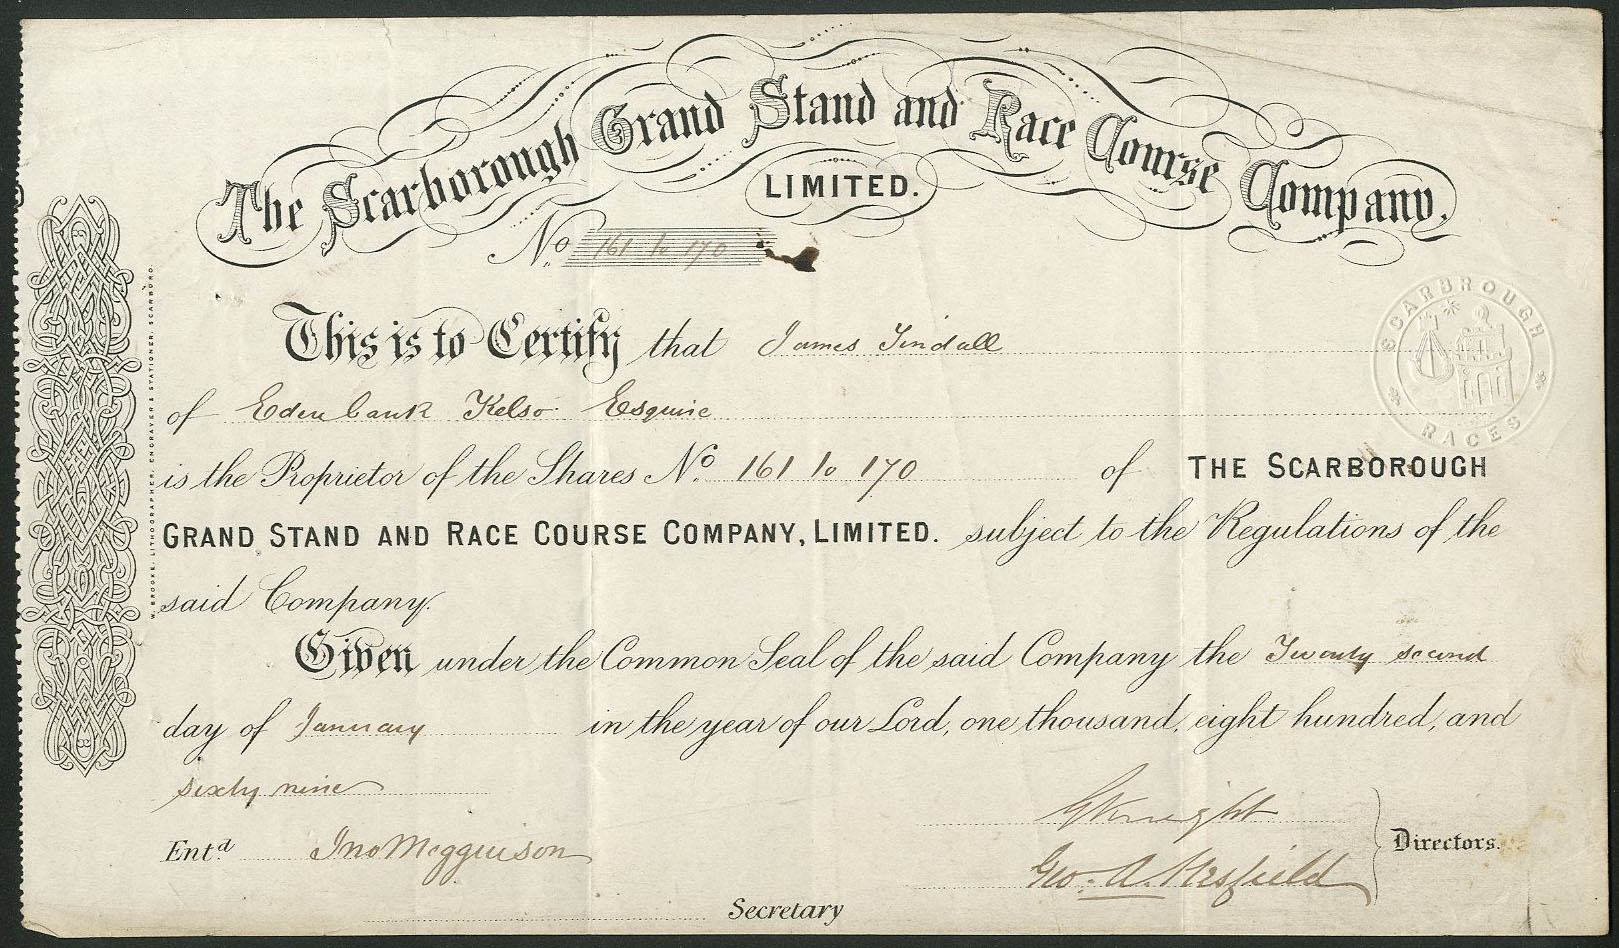 The Scarborough Grand Stand and Race Course Company,
LIMITED.
No. 161 to 170
SCARBROUGH
RACES
This is to Certify that James Tindall
of Edenbank Kelso Esquire
is the Proprietor of the Shares No. 161 to 170 of THE SCARBOROUGH
GRAND STAND AND RACE COURSE COMPANY, LIMITED. subject to the Regulations of the
said Company.
Given under the Common Seal of the said Company the Twenty second
day of January in the year of our Lord, one thousand, eight hundred, and
sixty nine
Knight
Directors.
Entd. Jno
Geo. A.
Secretary
W. BROOKE, LITHOGRAPHER, ENGRAVER & STATIONER, SCARBORO.